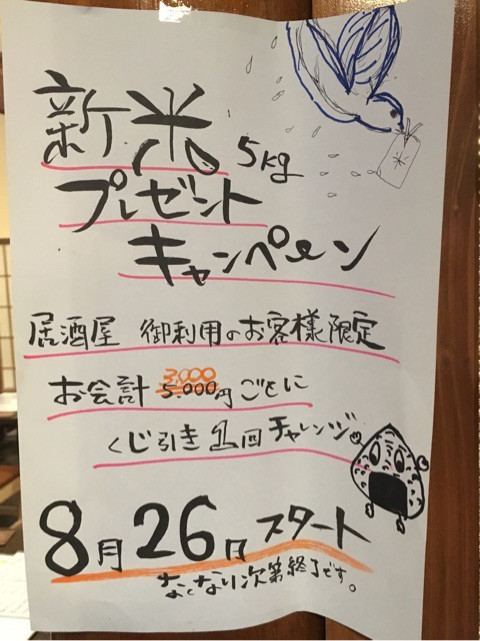 新米 5kg
プレゼント
キャンペーン
居酒屋 御利用のお客様限定
3,000
お会計 5.000円ごとに
くじ引き1回チャレンジ
8月26日スタート
なくなり次第終了です。
米